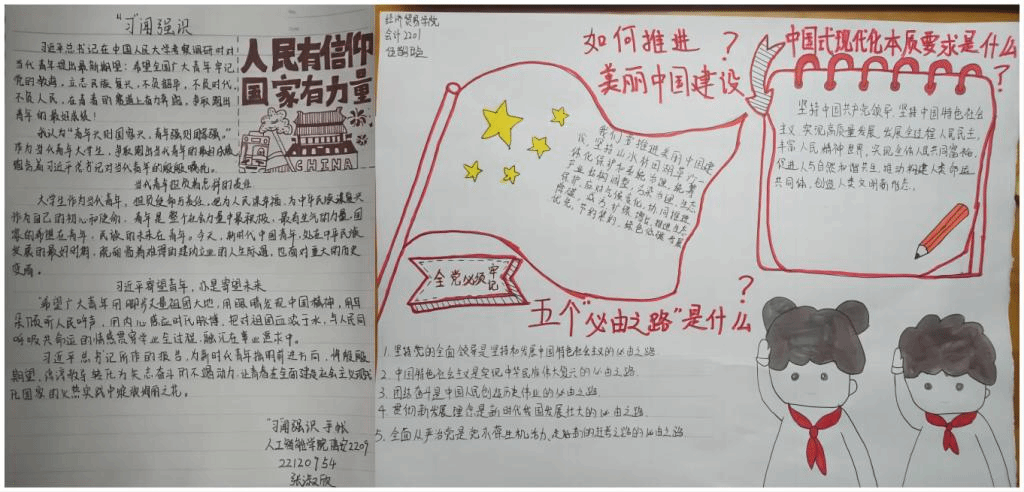 "习"闻强识
习近平总书记在中国人民大学考察调研时对
当代青年提出最新期望：希望全国广大青年牢记
党的教诲，立志民族复兴，不负韶华，不负时代，
不负人民，在青春的赛道上奋力奔跑，争取跑出
青年的最好成绩！
我认为"青年兴则国家兴，青年强则国家强。"
作为当代青年大学生，争取跑出当代青年的最好成绩
饱含着习近平总书记对当代青年的殷殷嘱托。
人民有信仰
国家有力量
CHINA
当代青年担负着怎样的责任
大学生作为当代青年，担负使命与责任，也为人民谋幸福，为中华民族谋复兴
作为自己的初心和使命，青年是整个社会力量中最积极，最有生气的力量，国
家的希望在青年，民族的未来在青年。今天，新时代中国青年，处在中华民族
发展的最好时期，既面临着难得的建功立业的人生际遇，也面对重大的历史
变局。
习近平寄望青年，亦是寄望未来
"希望广大青年用脚步丈量祖国大地，用眼睛发现中国精神，用耳
朵倾听人民呼声，用内心感应时代脉搏，把对祖国血浓于水，与人民同
呼吸共命运的情感贯穿学业全过程，融汇在事业追求中。
习近平总书记所作的报告，为新时代青年指明前进方向，将殷殷
期望，谆谆教导转化为矢志奋斗的不竭动力，让青春在全面建设社会主义现代
化国家的火热实践中绽放绚丽之花。
"习"闻强识 手帐
人工智能学院 2209
22120954
张淑欣
经济贸易学院
会计2201
如何推进
美丽中国建设
？
我们要推进美丽中国建
设，坚持山水林田湖草沙一
体化保护和系统治理，统筹
产业结构调整、污染治理、生态
保护、应对气候变化，协同推进
降碳、减污、扩绿、增长，推进生态
优先、节约集约、绿色低碳发展
中国式现代化本质要求是什么
？
坚持中国共产党领导，坚持中国特色社会
主义，实现高质量发展，发展全过程人民民主，
丰富人民精神世界，实现全体人民共同富裕，
促进人与自然和谐共生，推动构建人类命运
共同体，创造人类文明新形态。
全党必须牢记
五个"必由之路"是什么
？
1. 坚持党的全面领导是坚持和发展中国特色社会主义的必由之路.
2. 中国特色社会主义是实现中华民族伟大复兴的必由之路.
3. 团结奋斗是中国人民创造历史伟业的必由之路.
4. 贯彻新发展理念是新时代我国发展壮大的必由之路.
5. 全面从严治党是党永葆生机活力、走好新的赶考之路的必由之路